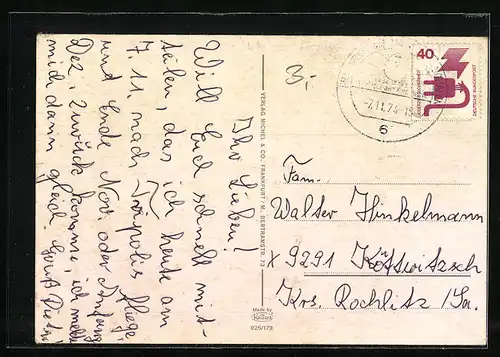 Ihr Lieben!
Will Euch schnell mit-
teilen, das ich heute am
7.11. nach Tripolis fliege,
und Ende Nov. oder Anfang
Dez. zurück komme, ich melde
mich dann gleich. Gruß Dieter
3,-
VERLAG MICHEL & CO., FRANKFURT/M., BERTRAMSTR. 73
Made by
Krüger
925/179
-7.11.74-15
6
40
DEUTSCHE BUNDESPOST
Fam.
Walter Hinkelmann
X 9291 Köttwitzsch
Krs. Rochlitz / Sa.